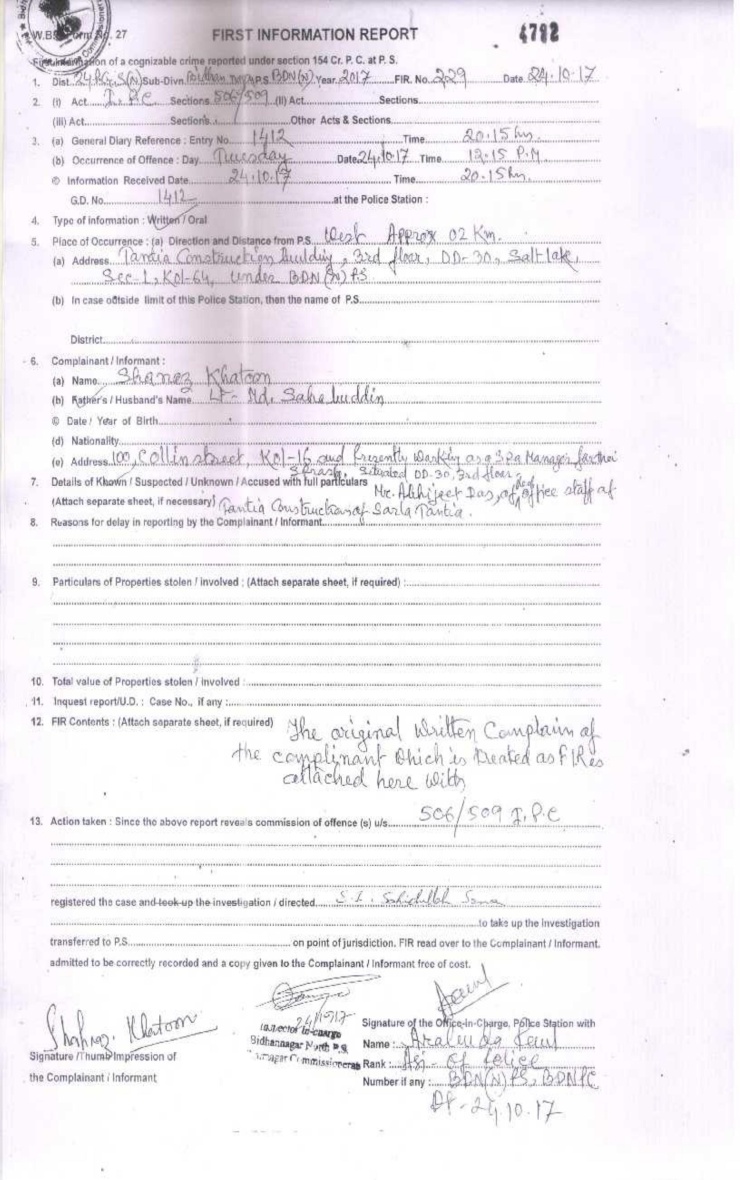 W.B. Form No. 27
FIRST INFORMATION REPORT
4792
First Information of a cognizable crime reported under section 154 Cr. P. C. at P. S.
1. Dist. 24 PGS (N) Sub-Divn. Bidhan nagar P.S. BDN(N) Year. 2017 FIR. No. 229 Date 24.10.17
2. (i) Act I. P.C Sections 506/509 (II) Act Sections
(iii) Act Sections Other Acts & Sections
3. (a) General Diary Reference : Entry No. 1412 Time 20.15 hr.
(b) Occurrence of Offence : Day Thursday Date 24.10.17 Time 12.15 P.M
© Information Received Date 24.10.17 Time 20.15 hr.
G.D. No. 1412 at the Police Station :
4. Type of information : Written / Oral
5. Place of Occurrence : (a) Direction and Distance from P.S. West Approx 02 Km.
(a) Address Tantia Construction building, 3rd floor, DD-30, Salt lake,
Sec-1, Kol-64, Under BDN (N) P.S
(b) In case outside limit of this Police Station, then the name of P.S.
District
6. Complainant / Informant :
(a) Name Shanoz Khatoon
(b) Father's / Husband's Name Lt- Md. Sahabuddin
© Date / Year of Birth
(d) Nationality
(e) Address 100, Collin street, Kol-16 and Presently Working as a Spa Manager
situated DD-30, 3rd floor,
7. Details of Known / Suspected / Unknown / Accused with full particulars Mr. Abhijeet Das, office staff of
(Attach separate sheet, if necessary) Tantia Construction of Sarla Tantia.
8. Reasons for delay in reporting by the Complainant / Informant
9. Particulars of Properties stolen / involved : (Attach separate sheet, if required) :
10. Total value of Properties stolen / involved :
11. Inquest report/U.D. : Case No., if any :
12. FIR Contents : (Attach separate sheet, if required) The original Written Complain of
the complinant Which is treated as FIR is
attached here With
13. Action taken : Since the above report reveals commission of offence (s) u/s. 506/509 I.P.C
registered the case and took up the investigation / directed S.I.
to take up the investigation
transferred to P.S. on point of jurisdiction. FIR read over to the Complainant / Informant.
admitted to be correctly recorded and a copy given to the Complainant / Informant free of cost.
Shahnaz Khatoon
24/10/17
Inspector In-charge
Bidhannagar North P.S.
Commissionerate
Signature / Thumb Impression of
the Complainant / Informant
Signature of the Office-In-Charge, Police Station with
Name :
Rank : Asi- of Police
Number if any : BDN(N) PS, BDNPC
Dt- 24.10.17